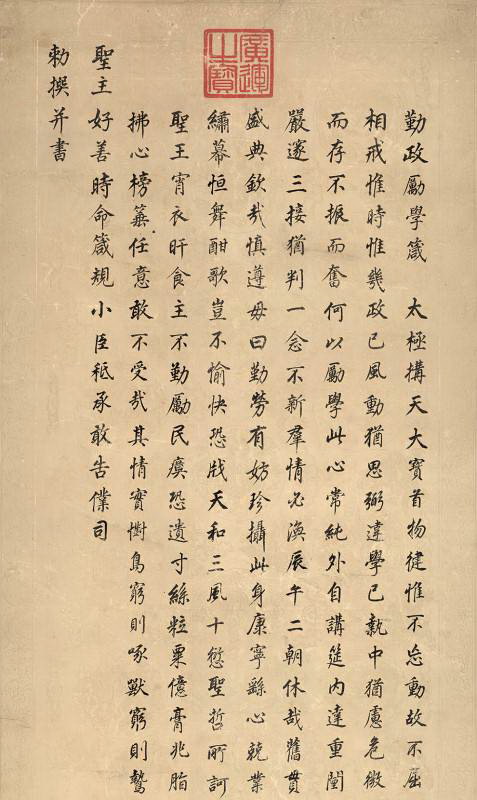 廣運之寶
勤政勵學箴 太極搆天大寶首物健惟不忘動故不屈
相戒惟時惟幾政已風動猶思弼違學已執中猶慮危微
而存不振而奮何以勵學此心常純外自講筵内達重閫
嚴邃三接猶判一念不新羣情必渙辰午二朝休哉舊貫
盛典欽哉慎遵毋曰勤勞有妨珍攝此身康寧繇心兢業
繡幕恒舞酣歌豈不愉快恐戕天和三風十愆聖哲所訶
聖王宵衣旰食主不勤勵民瘼恐遺寸絲粒粟億膏兆脂
拂心榜箠任意敢不受哉其情實懟鳥窮則啄獸窮則鷙
聖主好善時命箴規小臣秪承敢告僕司
勅撰并書